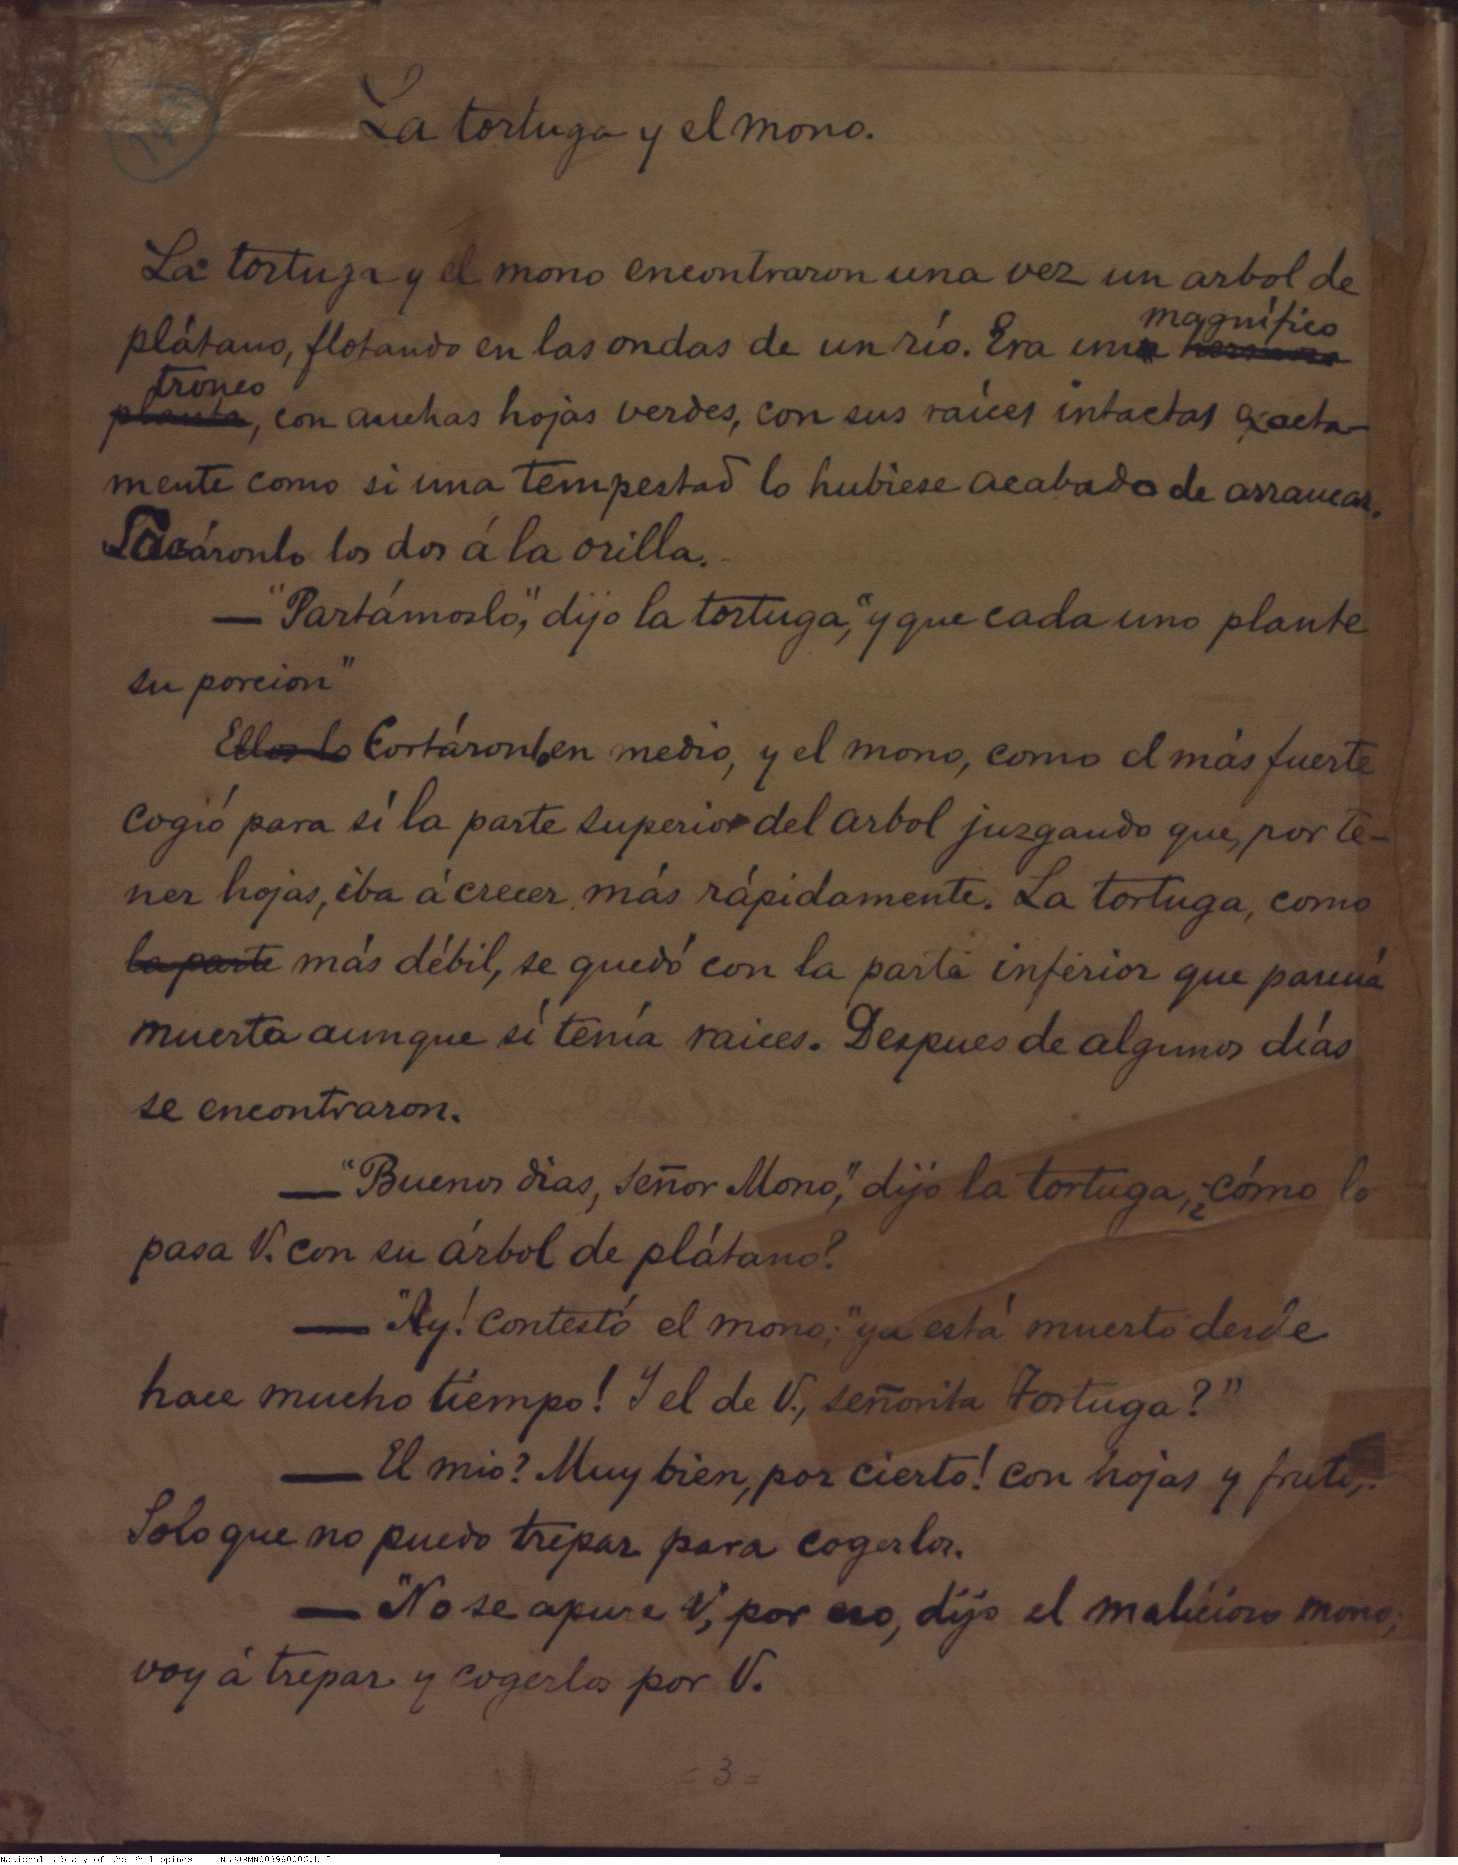 La tortuga y el mono.
La tortuga y el mono encontraron una vez un arbol de
magnífico
plátano, flotando en las ondas de un río. Era un
tronco
planta, con anchas hojas verdes, con sus raíces intactas exacta-
mente como si una tempestad lo hubiese acabado de arrancar.
Sacáronlo los dos á la orilla.
— "Partámoslo," dijo la tortuga, "y que cada uno plante
su porcion"
Ellos lo Cortáronlo en medio, y el mono, como el más fuerte
cogió para sí la parte superior del arbol juzgando que, por te-
ner hojas, iba á crecer más rápidamente. La tortuga, como
la parte más débil, se quedó con la parte inferior que parecía
muerta aunque sí tenía raices. Despues de algunos días
se encontraron.
— "Buenos dias, señor Mono," dijo la tortuga, ¿cómo lo
pasa V. con su árbol de plátano?
— "Ay! contestó el mono; "ya está muerto desde
hace mucho tiempo! Y el de V., señorita Tortuga?"
— El mio? Muy bien, por cierto! con hojas y
Solo que no puedo trepar para cogerlos.
— "No se apure V, por eso, dijo el malicioso mono;
voy á trepar y cogerlos por V.
= 3 =
National Library of the Philippines